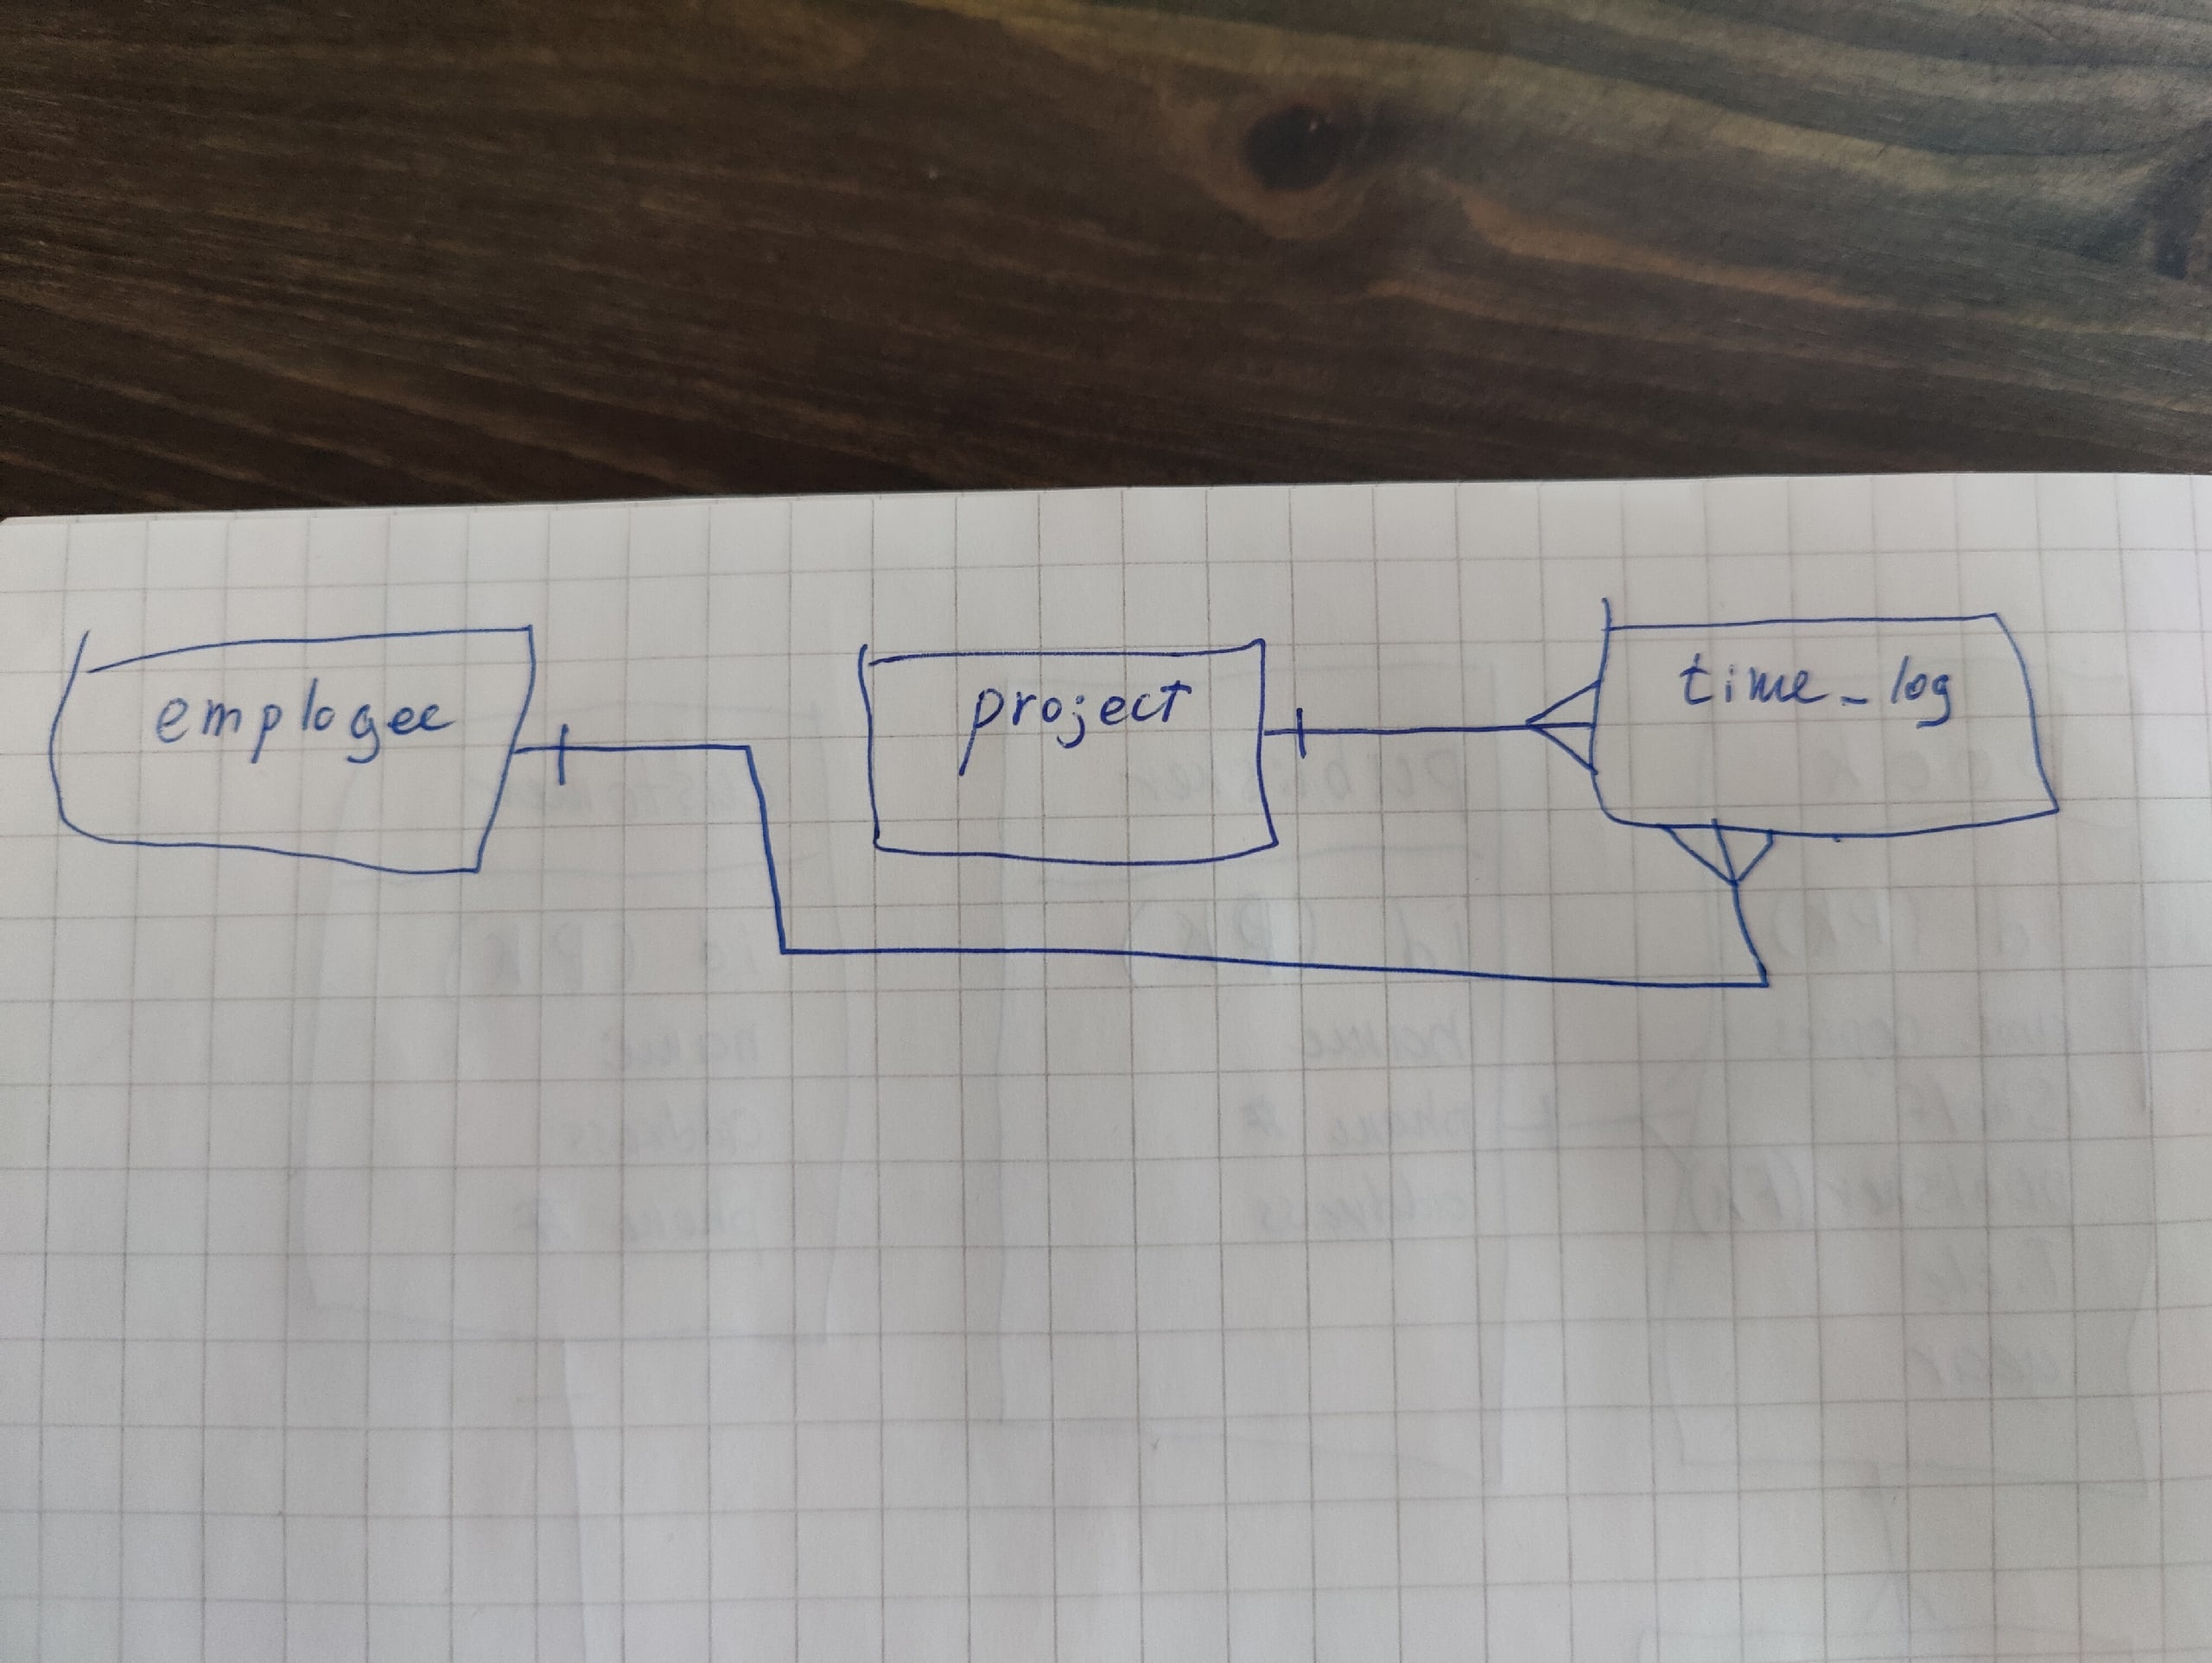 employee
project
time_log